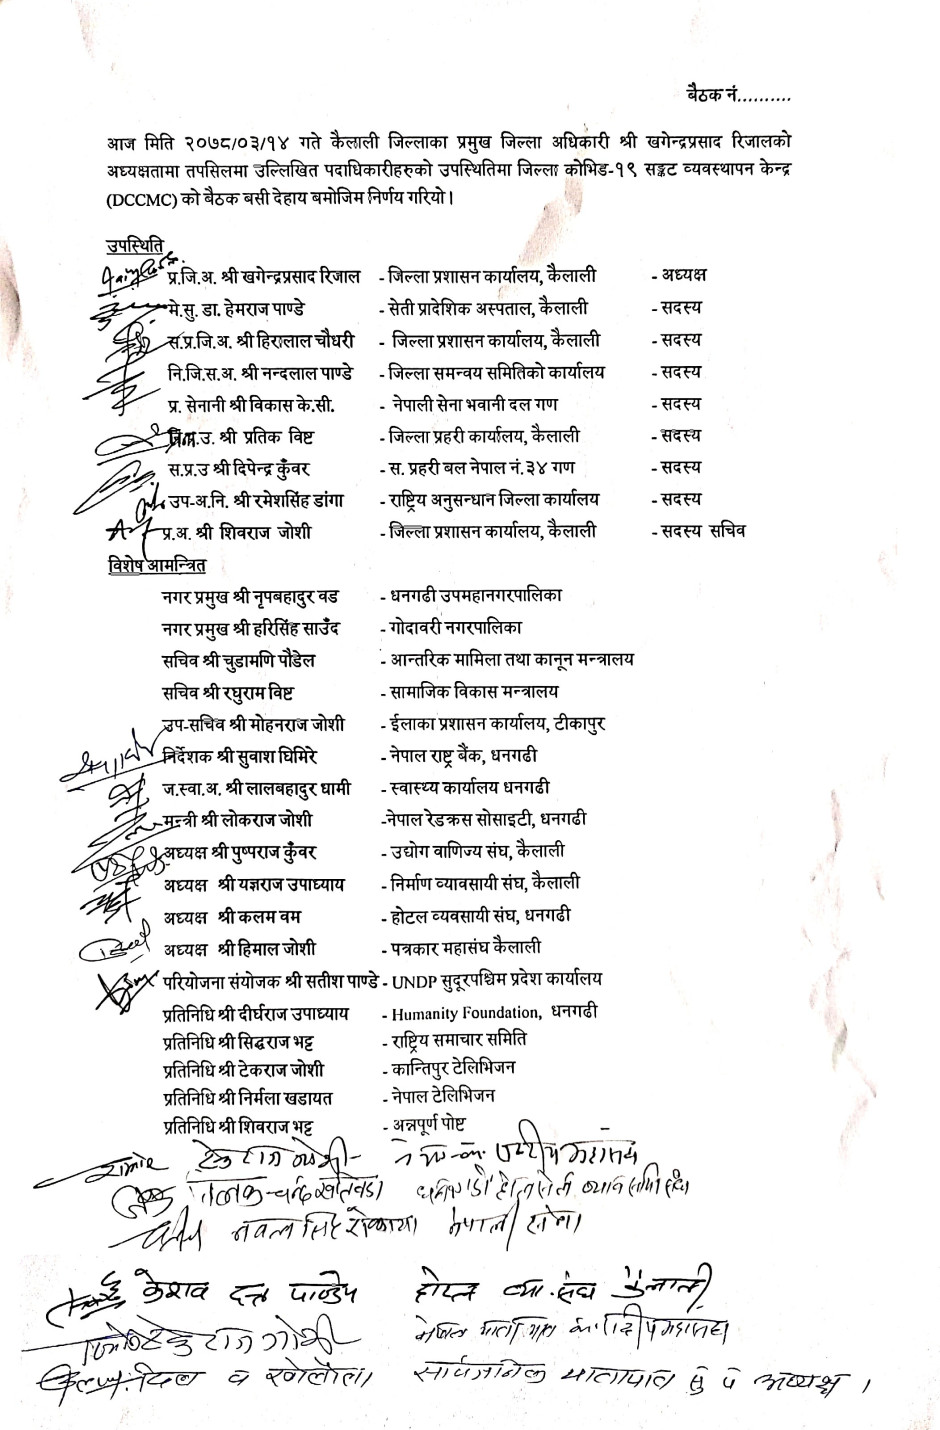 बैठक नं..........
आज मिति २०७८/०३/१४ गते कैलाली जिल्लाका प्रमुख जिल्ला अधिकारी श्री खगेन्द्रप्रसाद रिजालको
अध्यक्षतामा तपसिलमा उल्लिखित पदाधिकारीहरुको उपस्थितिमा जिल्ला कोभिड-१९ सङ्कट व्यवस्थापन केन्द्र
(DCCMC) को बैठक बसी देहाय बमोजिम निर्णय गरियो।
उपस्थिति
प्र.जि.अ. श्री खगेन्द्रप्रसाद रिजाल - जिल्ला प्रशासन कार्यालय, कैलाली - अध्यक्ष
मे.सु. डा. हेमराज पाण्डे - सेती प्रादेशिक अस्पताल, कैलाली - सदस्य
स.प्र.जि.अ. श्री हिरालाल चौधरी - जिल्ला प्रशासन कार्यालय, कैलाली - सदस्य
नि.जि.स.अ. श्री नन्दलाल पाण्डे - जिल्ला समन्वय समितिको कार्यालय - सदस्य
प्र. सेनानी श्री विकास के.सी. - नेपाली सेना भवानी दल गण - सदस्य
प्र.उ. श्री प्रतिक विष्ट - जिल्ला प्रहरी कार्यालय, कैलाली - सदस्य
स.प्र.उ श्री दिपेन्द्र कुँवर - स. प्रहरी बल नेपाल नं.३४ गण - सदस्य
उप-अ.नि. श्री रमेशसिंह डांगा - राष्ट्रिय अनुसन्धान जिल्ला कार्यालय - सदस्य
प्र.अ. श्री शिवराज जोशी - जिल्ला प्रशासन कार्यालय, कैलाली - सदस्य सचिव
विशेष आमन्त्रित
नगर प्रमुख श्री नृपबहादुर वड - धनगढी उपमहानगरपालिका
नगर प्रमुख श्री हरिसिंह साउँद - गोदावरी नगरपालिका
सचिव श्री चुडामणि पौडेल - आन्तरिक मामिला तथा कानून मन्त्रालय
सचिव श्री रघुराम विष्ट - सामाजिक विकास मन्त्रालय
उप-सचिव श्री मोहनराज जोशी - ईलाका प्रशासन कार्यालय, टीकापुर
निर्देशक श्री सुवाश घिमिरे - नेपाल राष्ट्र बैंक, धनगढी
ज.स्वा.अ. श्री लालबहादुर धामी - स्वास्थ्य कार्यालय धनगढी
मन्त्री श्री लोकराज जोशी -नेपाल रेडक्रस सोसाइटी, धनगढी
अध्यक्ष श्री पुष्पराज कुँवर - उद्योग वाणिज्य संघ, कैलाली
अध्यक्ष श्री यज्ञराज उपाध्याय - निर्माण व्यावसायी संघ, कैलाली
अध्यक्ष श्री कलम वम - होटल व्यवसायी संघ, धनगढी
अध्यक्ष श्री हिमाल जोशी - पत्रकार महासंघ कैलाली
परियोजना संयोजक श्री सतीश पाण्डे - UNDP सुदूरपश्चिम प्रदेश कार्यालय
प्रतिनिधि श्री दीर्घराज उपाध्याय - Humanity Foundation, धनगढी
प्रतिनिधि श्री सिद्धराज भट्ट - राष्ट्रिय समाचार समिति
प्रतिनिधि श्री टेकराज जोशी - कान्तिपुर टेलिभिजन
प्रतिनिधि श्री निर्मला खडायत - नेपाल टेलिभिजन
प्रतिनिधि श्री शिवराज भट्ट - अन्नपूर्ण पोष्ट
नवल सिंह रोकाया नेपाली सेना
केशव दत्त पाण्डेय होटल व्य. संघ कैलाली
सार्वजनिक यातायात सु प अध्यक्ष ।